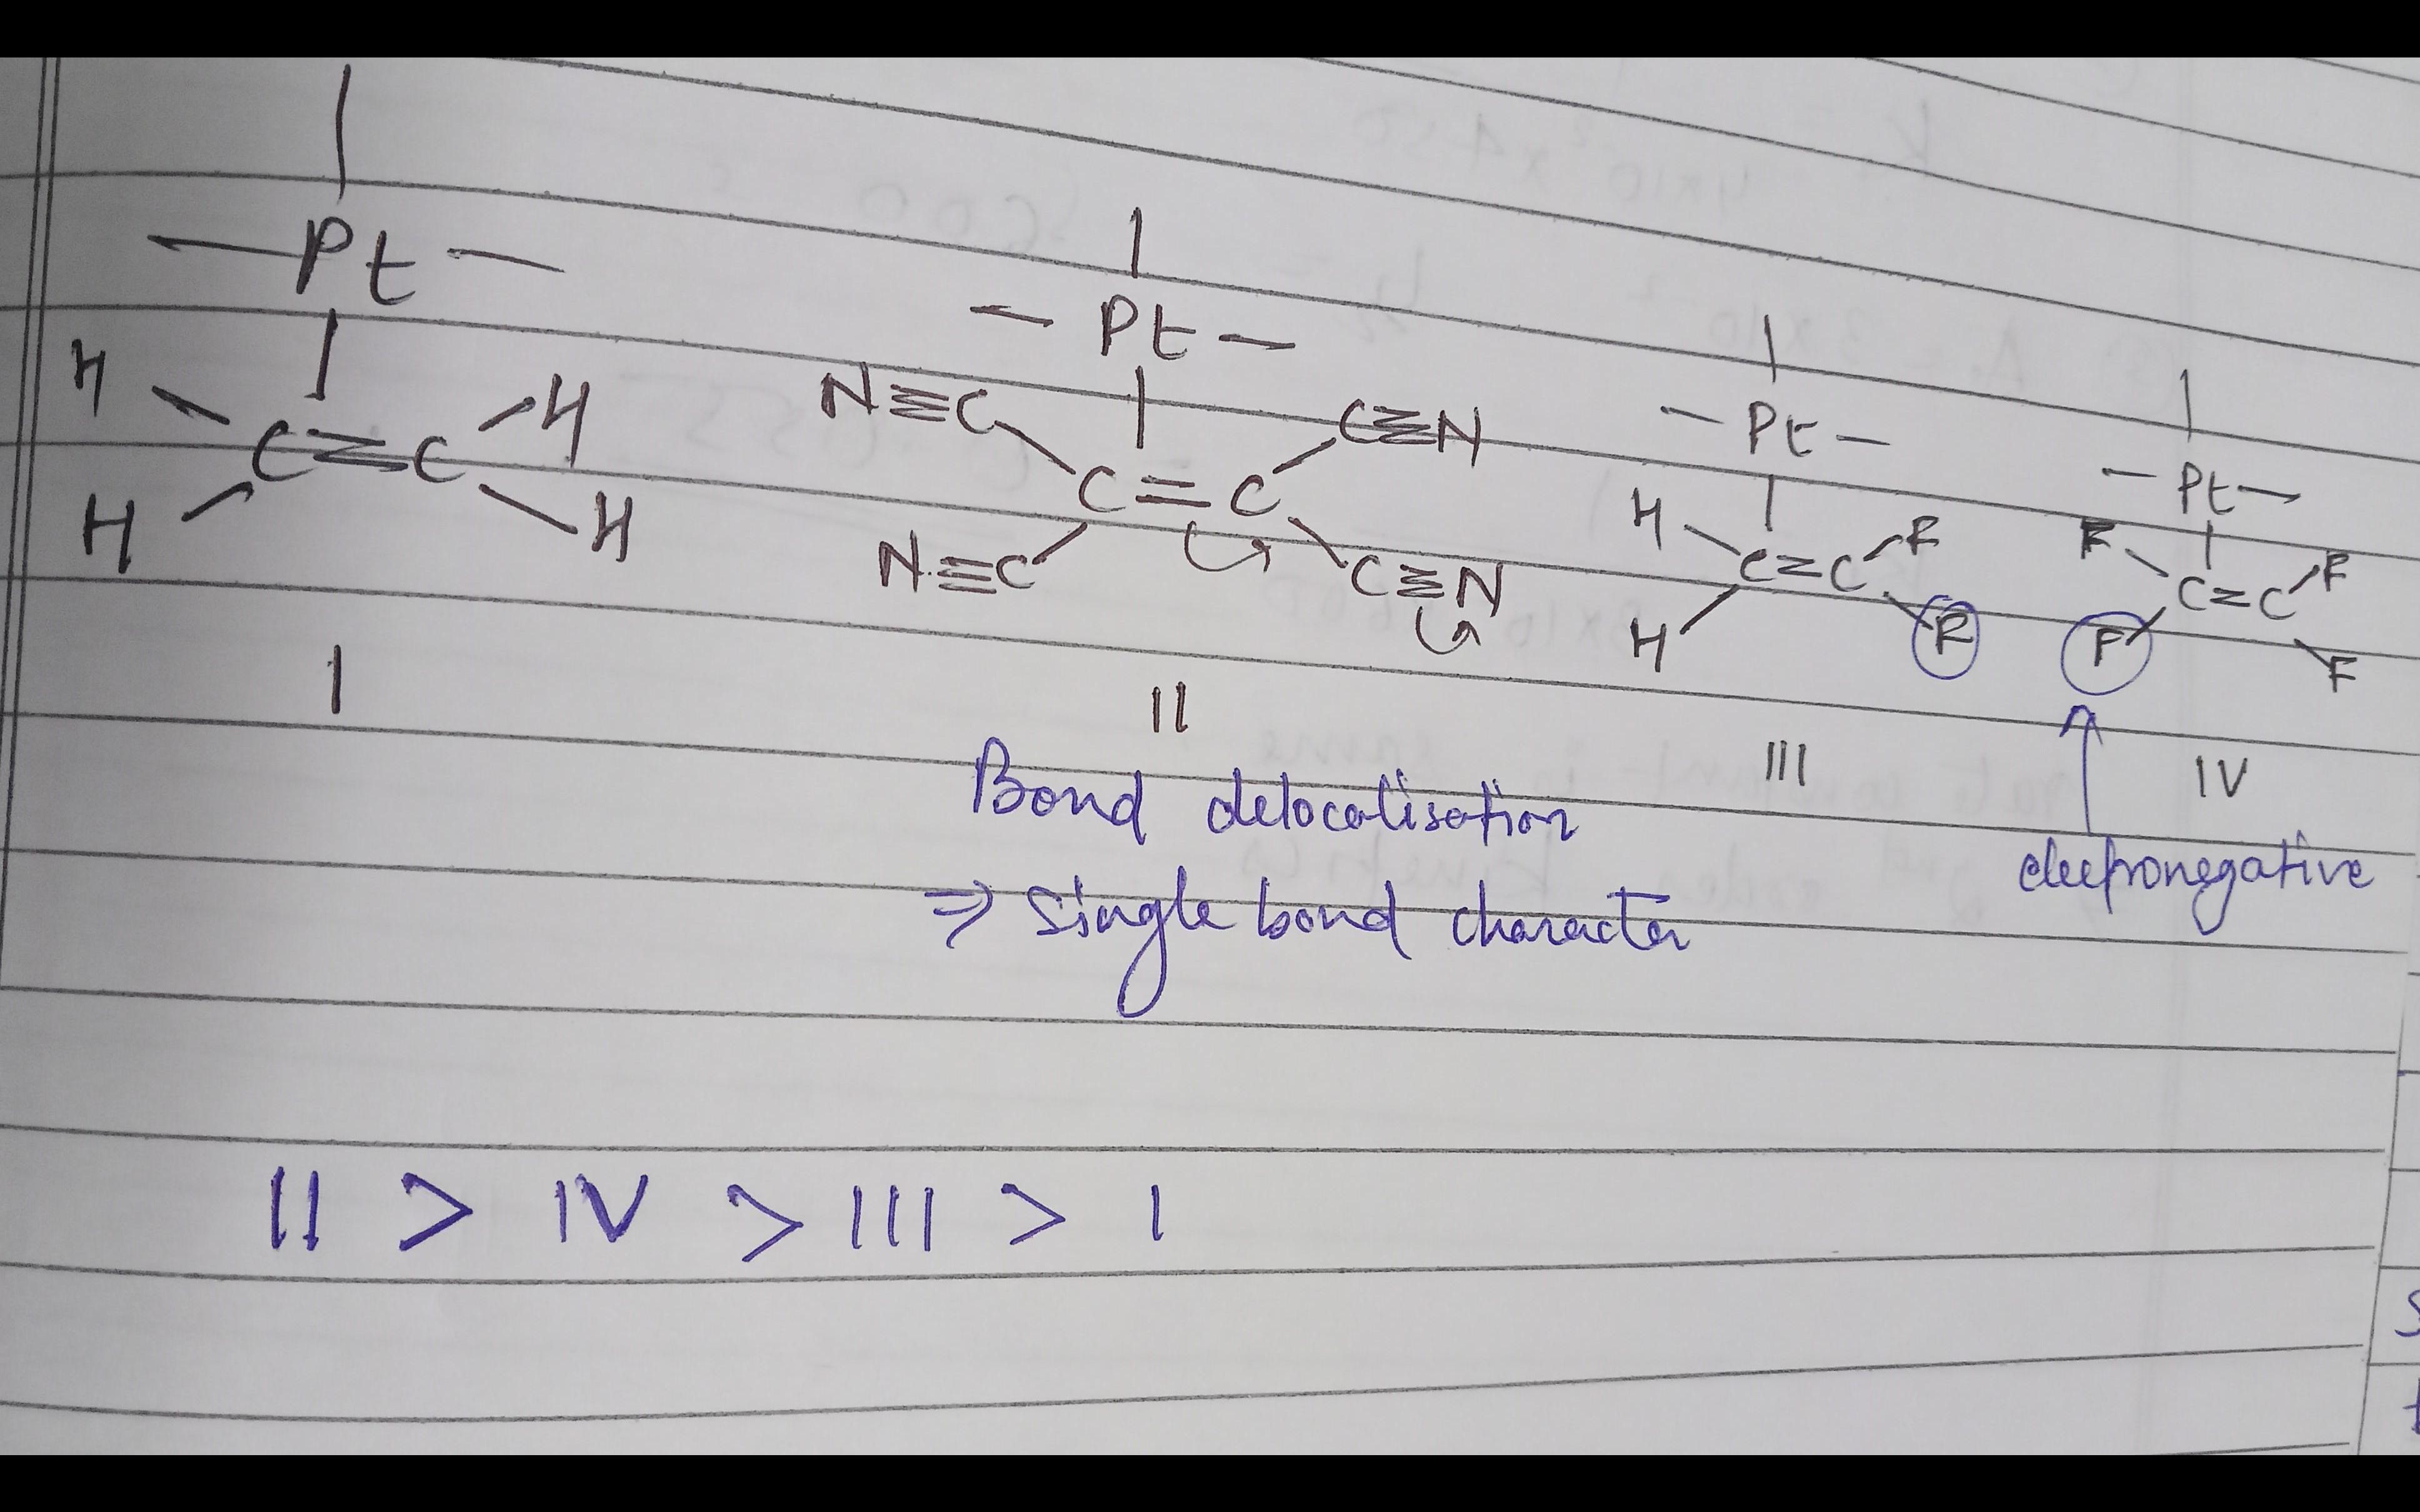 Pt
H H
C=C
H H
I
Pt
N≡C C≡N
C=C
N≡C C≡N
II
Pt
H F
C=C
H F
III
Pt
F F
C=C
F F
IV
Bond delocalisation
⇒ Single bond character
electronegative
II > IV > III > I